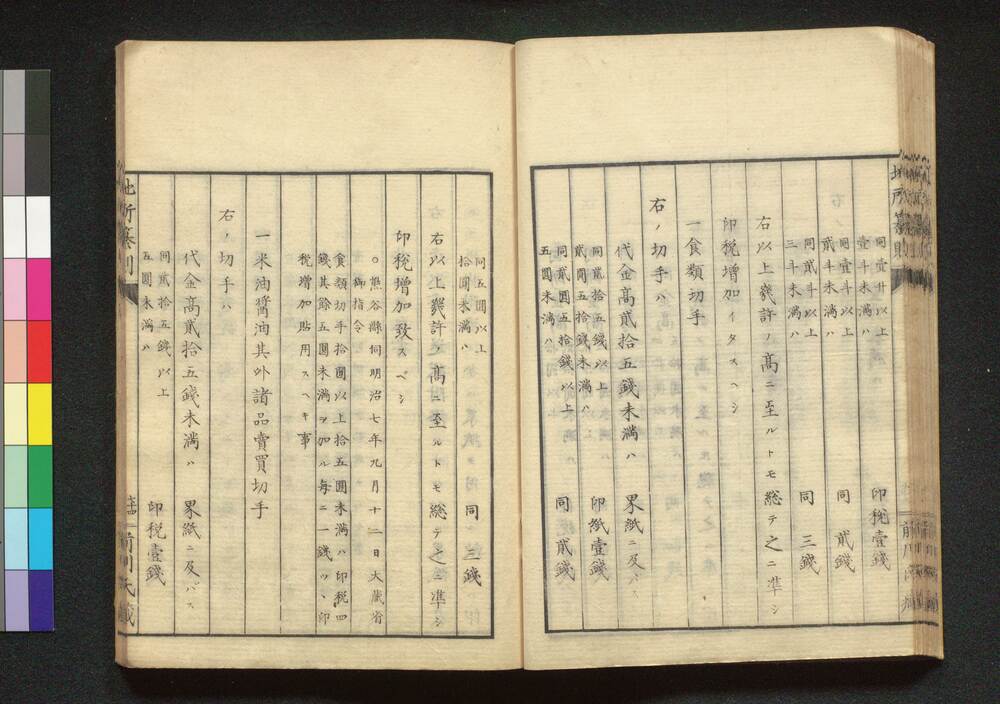 同壹斗以上
壹斗未満ハ
印税壹錢
同壹斗以上
貳斗未満ハ
同 貳錢
同貳斗以上
三斗未満ハ
同 三錢
右以上幾許ノ高ニ至ルトモ総テ之ニ準シ
印税増加イタスヘシ
一食類切手
右ノ切手ハ
代金高貳拾五錢未満ハ 界紙ニ及ハス
同貳拾五錢以上
貳圓五拾錢未満ハ
印紙壹錢
同貳圓五拾錢以上
五圓未満ハ
同 貳錢
同五圓以上
拾圓未満ハ
同 三錢
右以上幾許ノ高ニ至ルトモ総テ之ニ準シ
印税増加致スベシ
○熊谷縣伺明治七年九月十二日大蔵省
御指令
食類切手拾圓以上拾五圓未満ハ印税四
錢其餘五圓未満ヲ加ル毎ニ一錢ツヽ印
税増加貼用スヘキ事
一米油醤油其外諸品賣買切手
右ノ切手ハ
代金高貳拾五錢未満ハ 界紙ニ及バス
同貳拾五錢以上
五圓未満ハ
印税壹錢